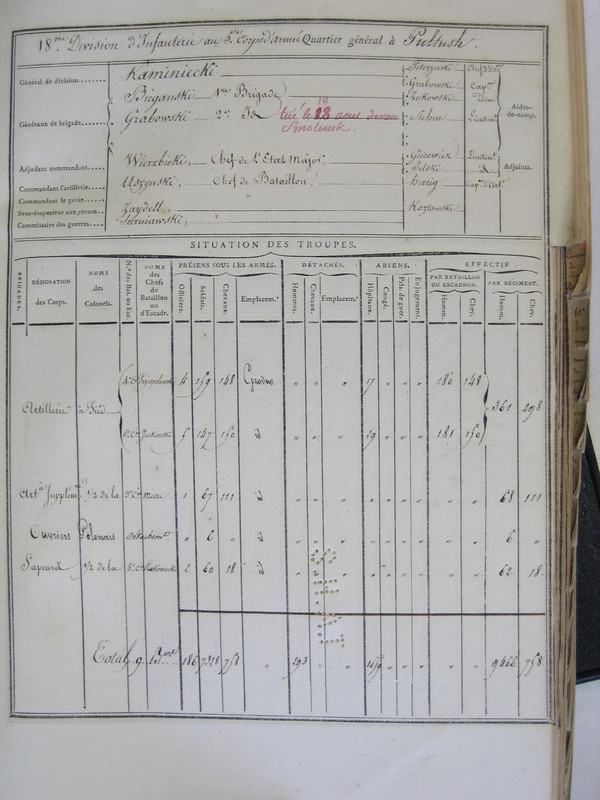 18.me Division d'Infanterie au 5.me Corps d'armée Quartier général à Pultusk.
Général de division....... Kaminiecki
Petrynski Chef d'Esc.
Grabowski Cap.ne
Généraux de brigade....... Bieganski — 1.re Brigade
Zukowski idem
Grabowski — 2.e Id tué le 18 aout devant Smolensk.
Lieuten.
Aides-de-camp.
Adjudant commandant....... Wierzbicki, — Chef de l'Etat Major
Lieuten.
Pelski id
Adjoints.
Commandant l'artillerie....... Uszynski, — Chef de Bataillon.
hertzig Cap.
Commandant le génie.......
Sous-inspecteur aux revues..... Zaydell,
Kozlowski
Commissaire des guerres...
SITUATION DES TROUPES.
BRIGADES.
DÉSIGNATION des Corps.
NOMS des Colonels.
N.os des Bat. ou Esc.
NOMS des Chefs de Bataillon ou d'Escadr.
PRÉSENS SOUS LES ARMES.
Officiers. Soldats. Chevaux. Emplacem.t
DÉTACHÉS.
Hommes. Chevaux. Emplacem.t
ABSENS.
Hôpitaux. Congé. Pris. de guer. Enjugement.
EFFECTIF
PAR BATAILLON OU ESCADRON. PAR RÉGIMENT.
Homm. Chev. Homm. Chev.
4 159 148 Grodno " " " 17 " " " 180 148
Artillerie à Pied 361 298
5 147 150 id " " " 29 " " " 181 150
Art.ie Supplém.re 1/2 de la 3.e C.ie 1 67 111 id " " " " " " " " " 68 111
Ouvriers Polonais " 6 " id " " " " " " " " " 6 "
Sapeurs 1/2 de la 5.e C.ie 2 60 18 id " " " " " " " " 62 18
Total 9 B.ons 186 7328 758 " 293 " " 1659 " " " " " 9466 758